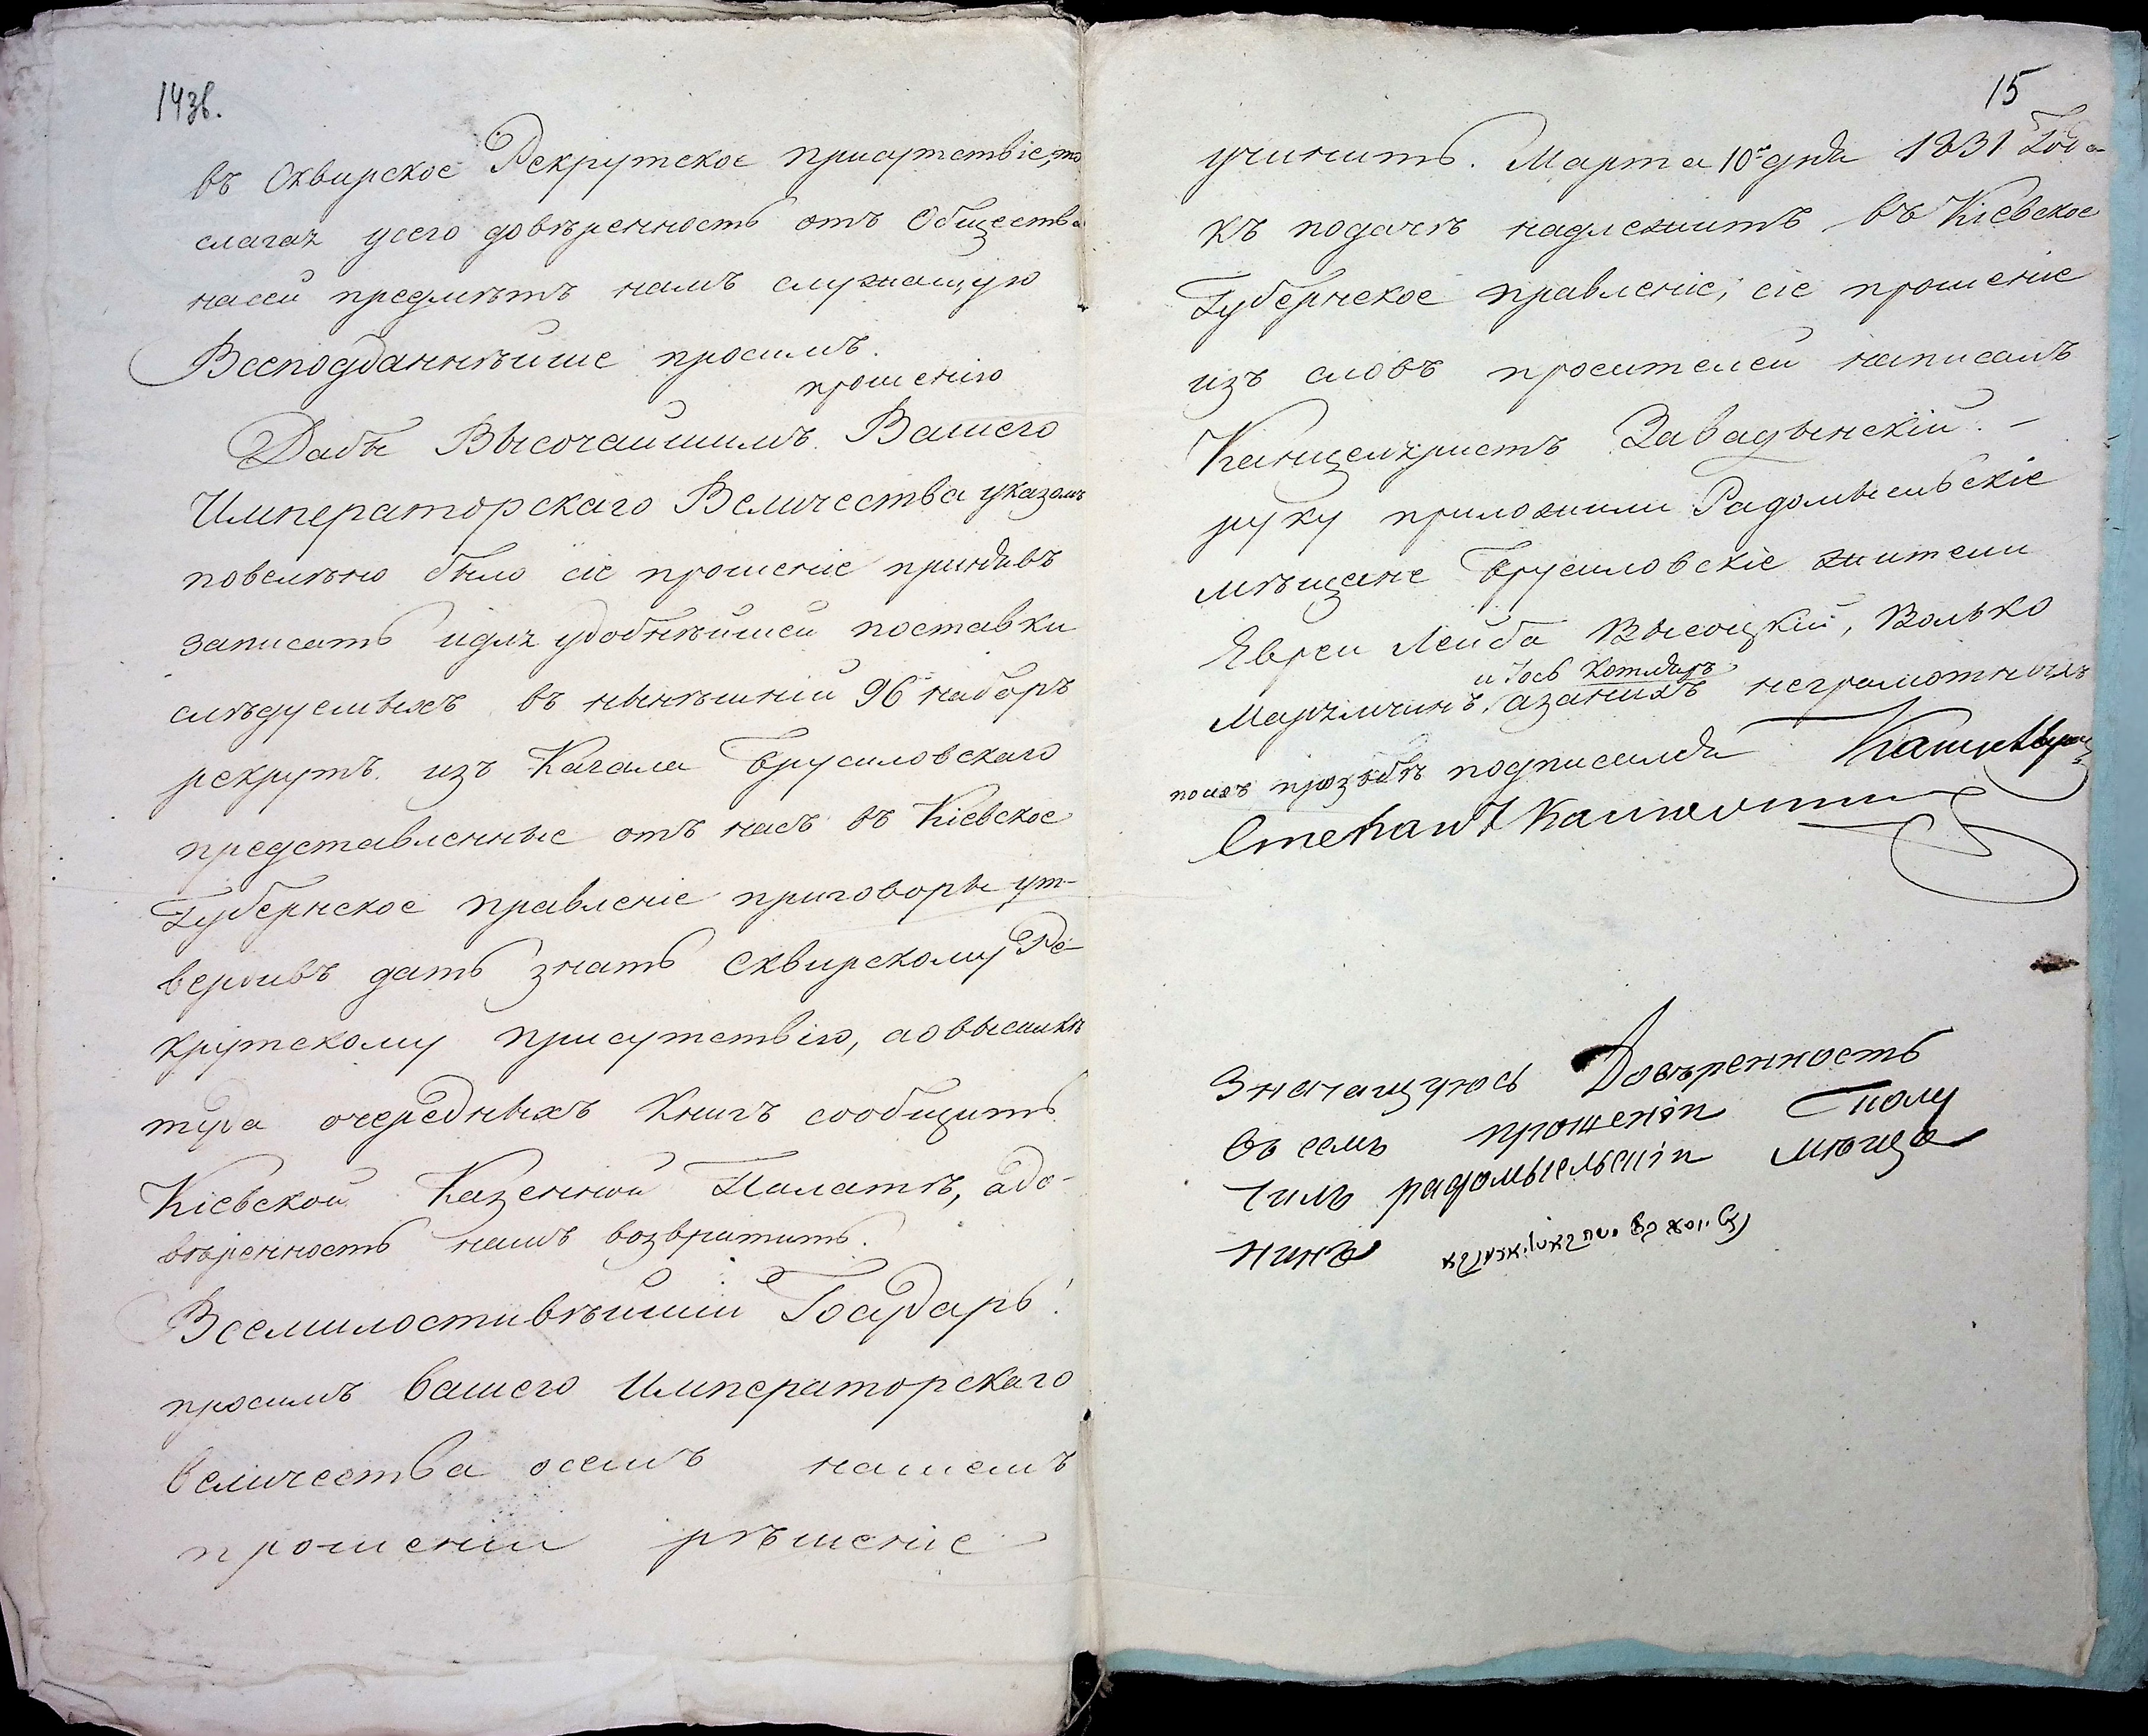 14зв.
въ Сквирское Рекрутское присутствіе, то
слагая усего довѣренность отъ Общества
насей предмѣтъ намъ служащую
Всеподданнѣйше просимъ.
прошенію
Дабы Высочайшимъ Вашего
Императорскаго Величества указомъ
повелѣно было сіе прошеніе принявъ
записать идля удобнѣйшей поставки
слѣдуемыхъ въ нынѣшній 96й наборъ
рекрутъ изъ Кагала Брусиловскаго
представленные отъ насъ въ Кіевское
Губернское правленіе приговоры ут-
вердивъ дать знать Сквирскому Ре-
крутскому присутствію, аовысылкѣ
туда очередныхъ книгъ сообщить
Кіевской Казенной Палатѣ, адо-
вѣренность намъ возвратить.
Всемилостивѣйшій Государь!
просимъ вашего Императорскаго
величества осемъ нашемъ
прошеніи рѣшеніе
15
учинить. Марта 10го дня 1831 Года
къ подачѣ надлежитъ въ Кіевское
Губернское правленіе; сіе прошеніе
изъ словъ просителей написалъ
Канцеляристъ Завадынскій. —
руку приложили Радомысльскіе
мѣщане Брусиловскіе жители
Евреи Лейба Высоцкій, Волько
и Іось Котляръ
неграмотныхъ
поихъ прозьбѣ подписался
Степанъ
Значащуюсь Довѣренность
въ семъ прошеніи Полу
чилъ радомысльскіи мѣща
нинъ